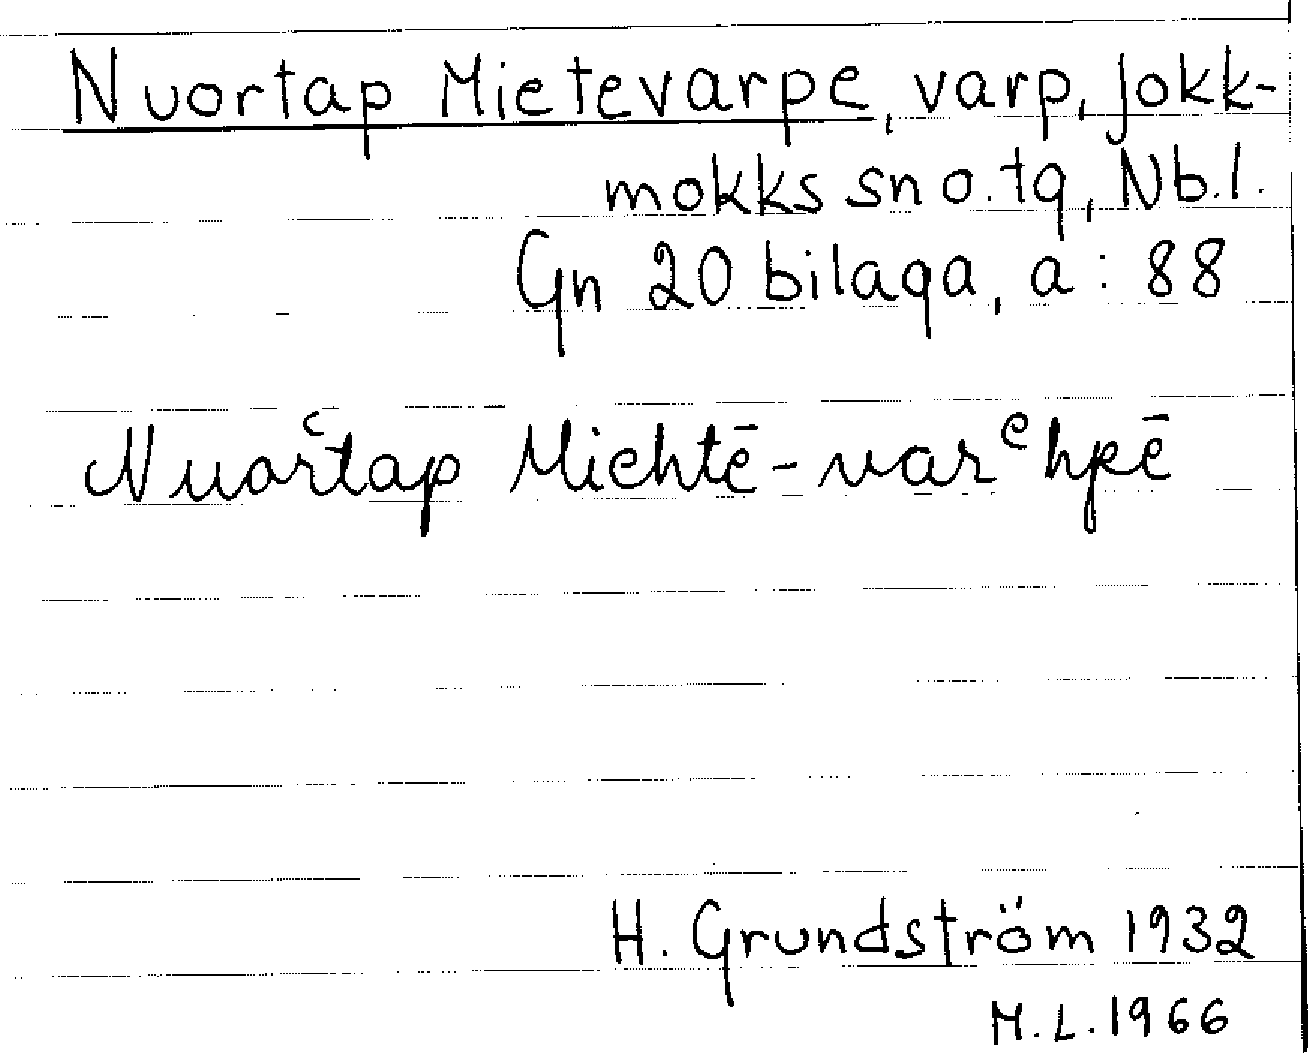 Nuortap Mietevarpe, varp, Jokk-
mokks sn o. tg, Nb. l.
Gn 20 bilaga, a : 88
Nuorʿtap Miehtē-varᵉhpē
H. Grundström 1932
M.L. 1966